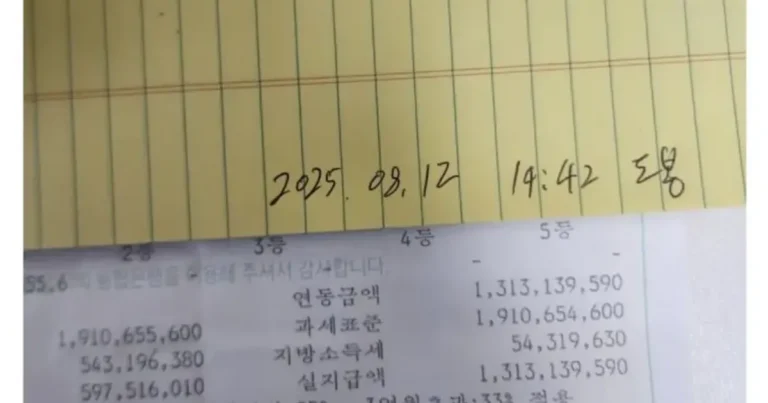 2025. 08. 12 14:42 도봉
2등 3등 4등 5등
55.6 농협은행을 이용해 주셔서 감사합니다. - -
연동금액 1,313,139,590
1,910,655,600 과세표준 1,910,654,600
543,196,380 지방소득세 54,319,630
597,516,010 실지급액 1,313,139,590
3억원초과:33% 적용